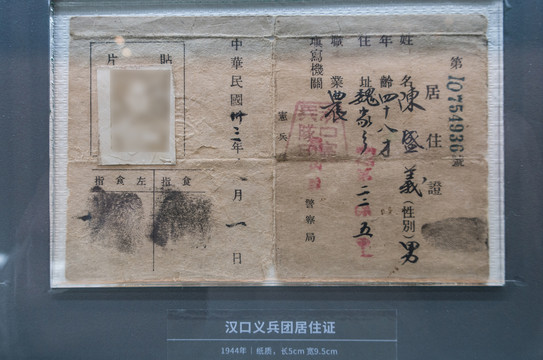 第10754936號
居住證
姓名 陳盛義 (性別) 男
年齡 四十八才
住址
職業 農
填寫機關
憲兵
警察局
中華民國卅三年 月一日
貼
片
食指
左食指
汉口义兵团居住证
1944年｜纸质，长5cm 宽9.5cm